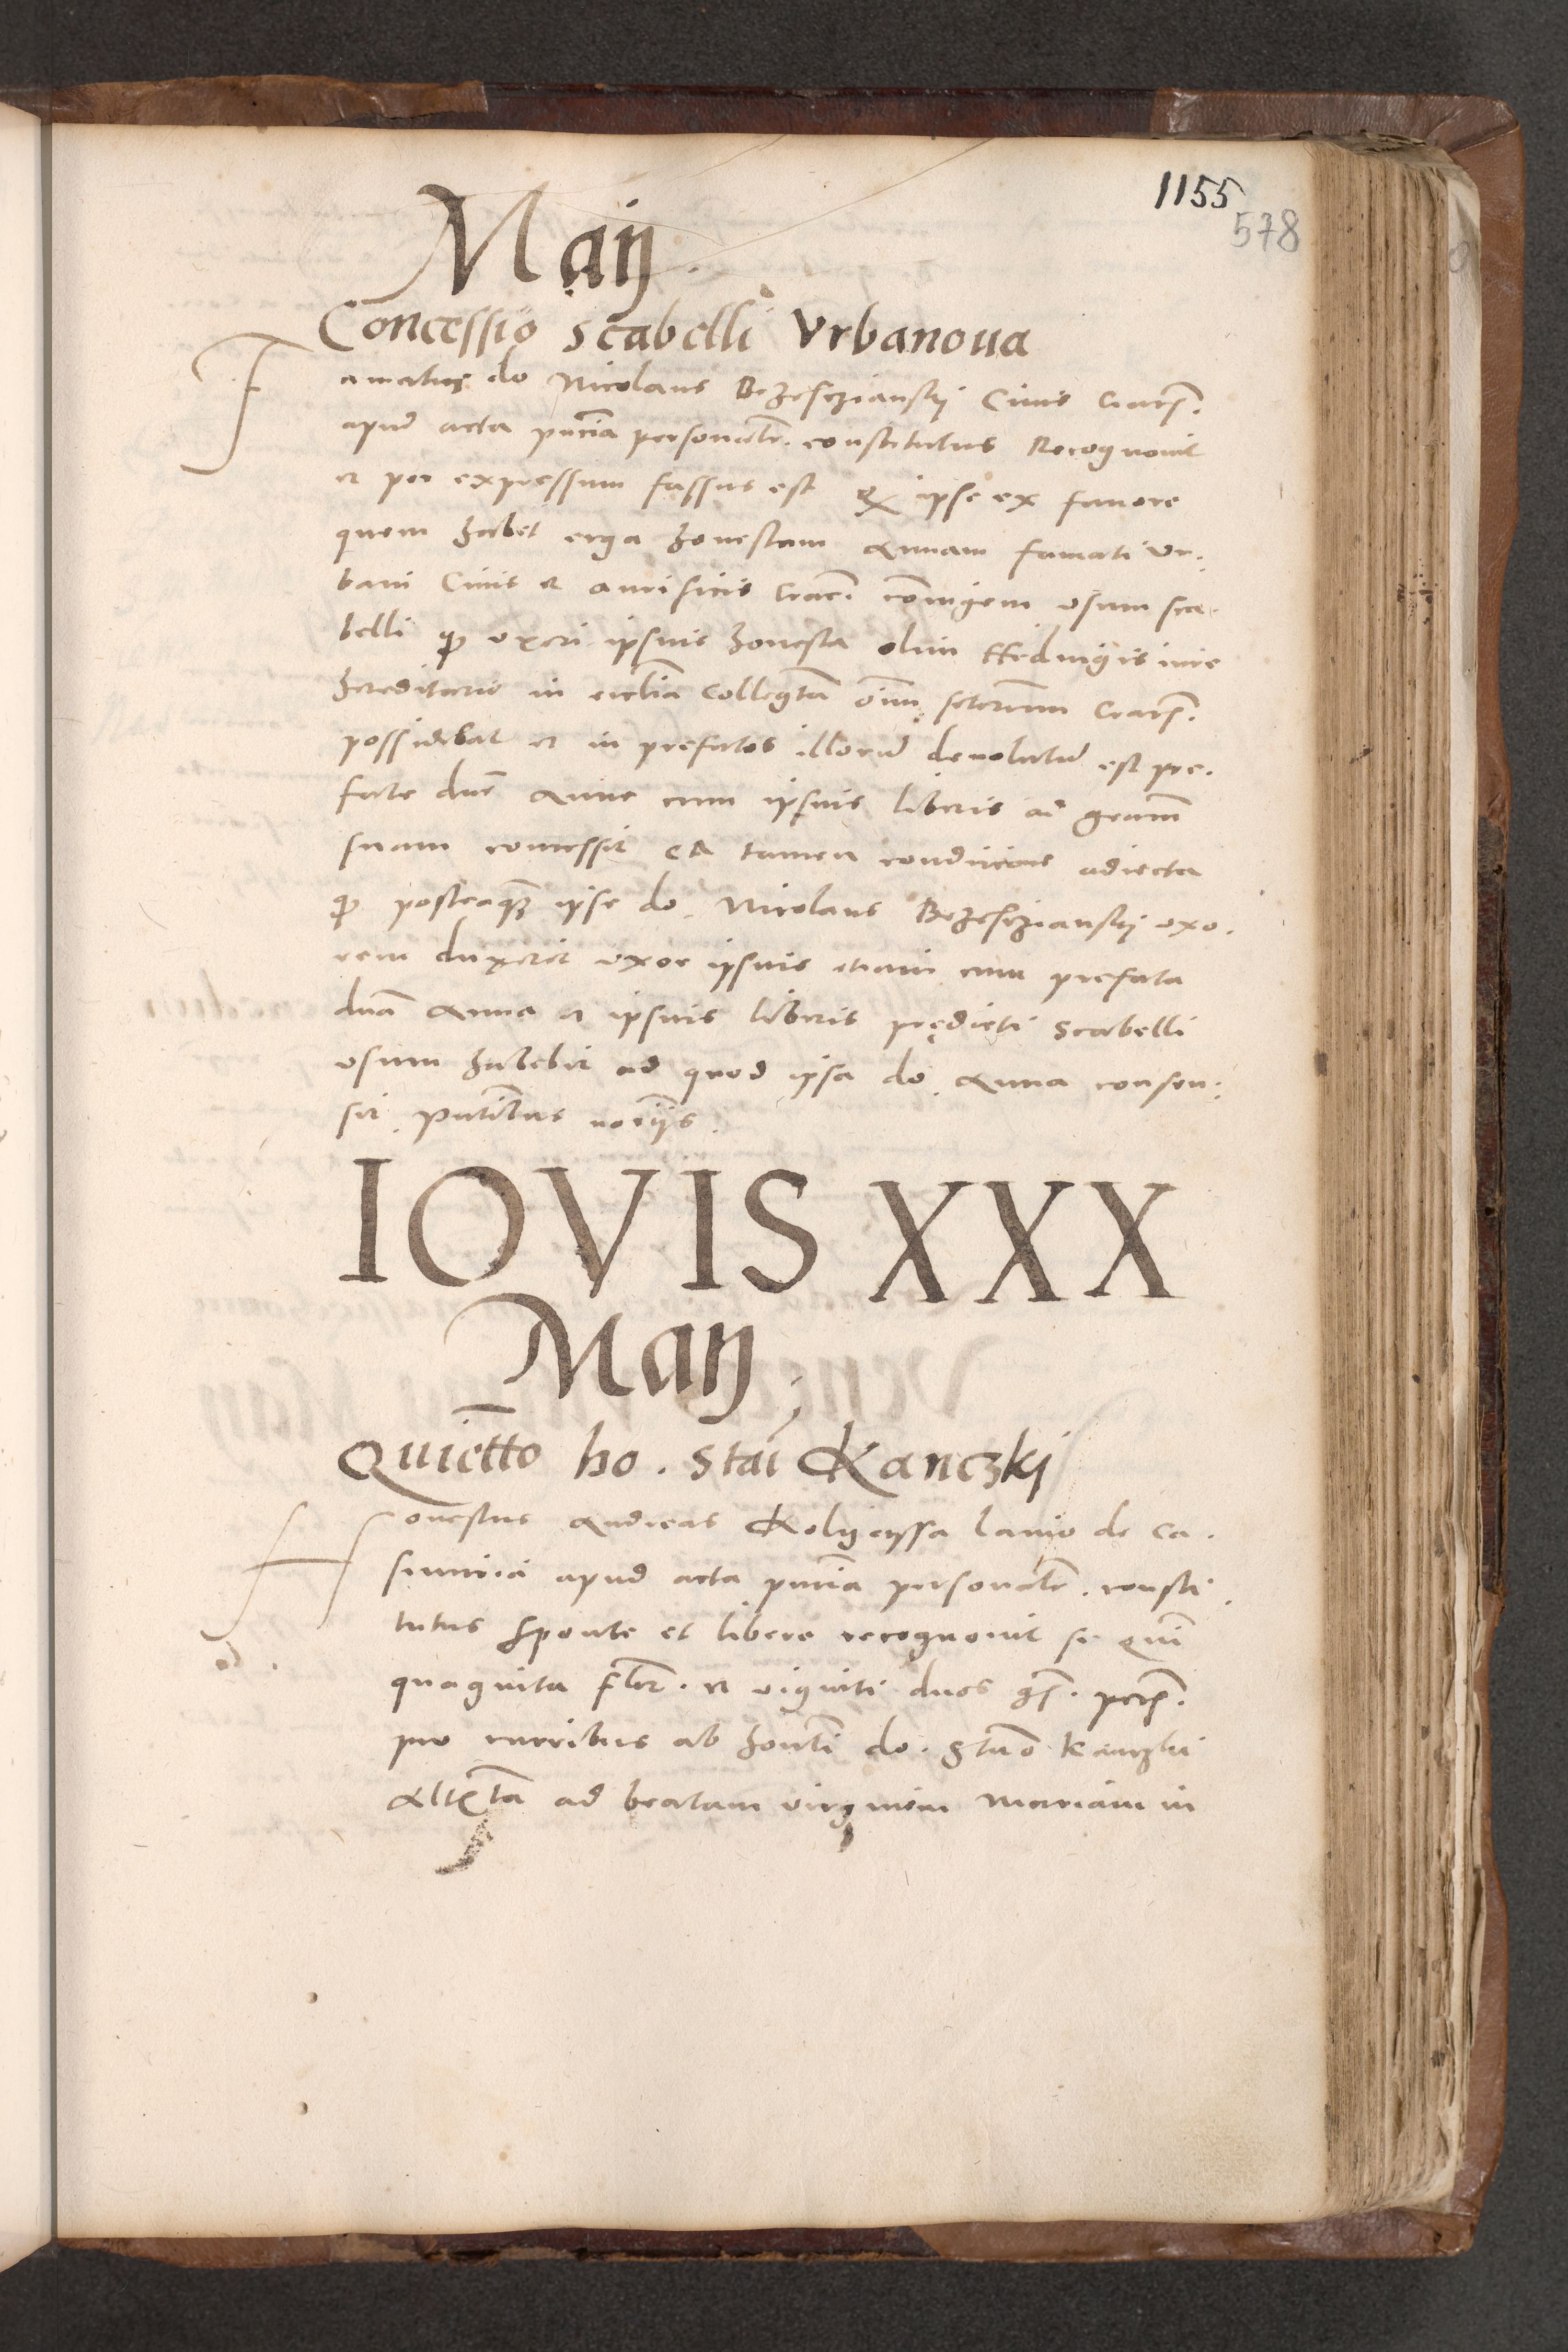 1155
578
Maij
Concessio scabelli Vrbanoua
Famatus do Nicolaus Bezeschianskij Ciuis Crac.
apud acta pncia personalr. constitutus Recognouit
et per expressum fassus est q ipse ex fauore
quem habet erga honestam Annam famati Vr.
bani Ciuis et aurificis Crac. coniugem vsum sca.
belli q vxori ipsius honesta olim Hedwigis iure
hereditario in ecclia Collegta oim sctorum Crac.
possidebat et in prefatos illorum deuolutum est pre.
fate dne Anne cum ipsius liberis ad gram
suam concessit ea tamen condicione adiecta
q posteaq ipse do. Nicolaus Bezeschianskij vxo.
rem duxerit vxor ipsius etiam cum prefata
dna Anna et ipsius liberis prędicti scabelli
vsum habebit ad quod ipsa do. Anna consen.
sit. pntibus
IOVIS XXX
Maij
Quietto ho. stai Kanczkj
Honestus Andreas lanio de Ca.
simiria apud acta pncia personalr. consti.
tutus sponte et libere recognouit se quin
quaginta flor. et viginti duos gs.
pro curribus ab honti do. Stano Kanczki
ad beatam virginem Mariam in